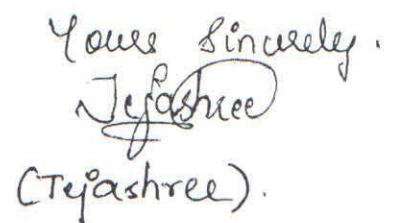 Yours Sincerely.
Tejashree
(Tejashree).